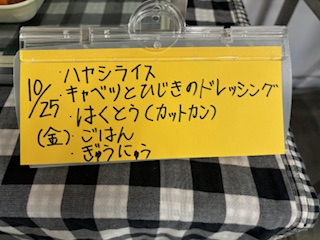 10/25
(金)
・ハヤシライス
・キャベツとひじきのドレッシング
・はくとう(カットカン)
・ごはん
・ぎゅうにゅう